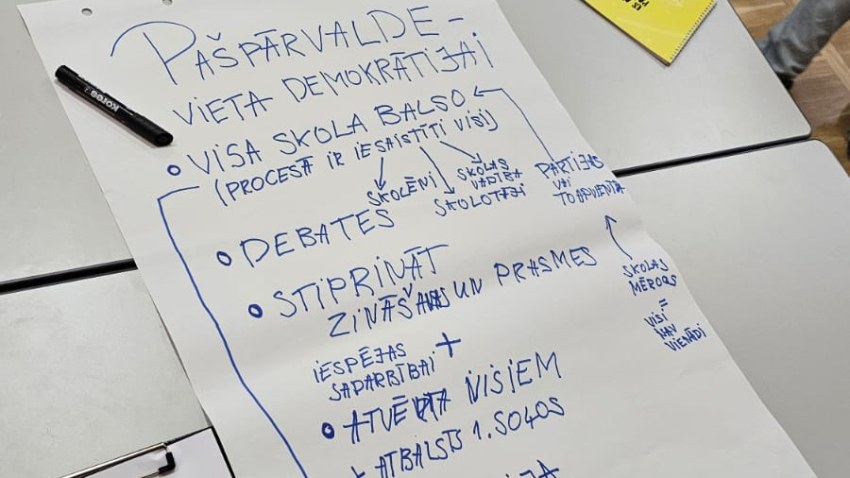 PAŠPĀRVALDE -
VIETA DEMOKRĀTIJAI
• VISA SKOLA BALSO
(PROCESĀ IR IESAISTĪTI VISI)
SKOLĒNI
SKOLOTĀJI
SKOLAS
VADĪBA
PARTIJAS
VAI
• DEBATES
• STIPRINĀT
ZINĀŠANAS UN PRASMES
SKOLAS
MĒROGS
=
VISI
NAV
VIENĀDI
IESPĒJAS
SADARBĪBAI +
• ATVĒRTA VISIEM
ATBALSTS 1. SOĻOS